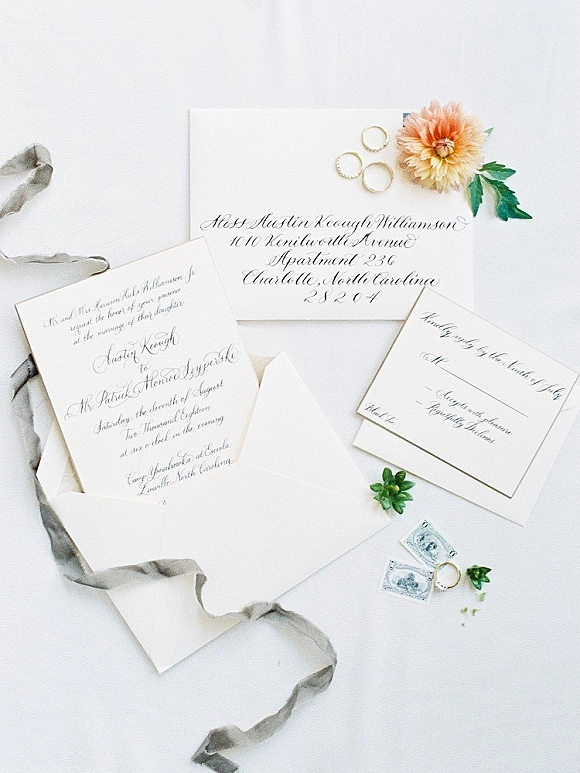 Miss Austin Keough Williamson
1010 Kenilworth Avenue
Apartment 236
Charlotte, North Carolina
28204
Mr. and Mrs. Harrison Hicks Williamson Jr.
request the honor of your presence
at the marriage of their daughter
Austin Keough
to
Mr. Patrick Monroe Szyperski
Saturday, the eleventh of August
Two Thousand Eighteen
at six o'clock in the evening
Camp Yonahnoka at Eseeola
Linville, North Carolina
Kindly reply by the Ninth of July
M
Accepts with pleasure
Regretfully Declines
Black Tie